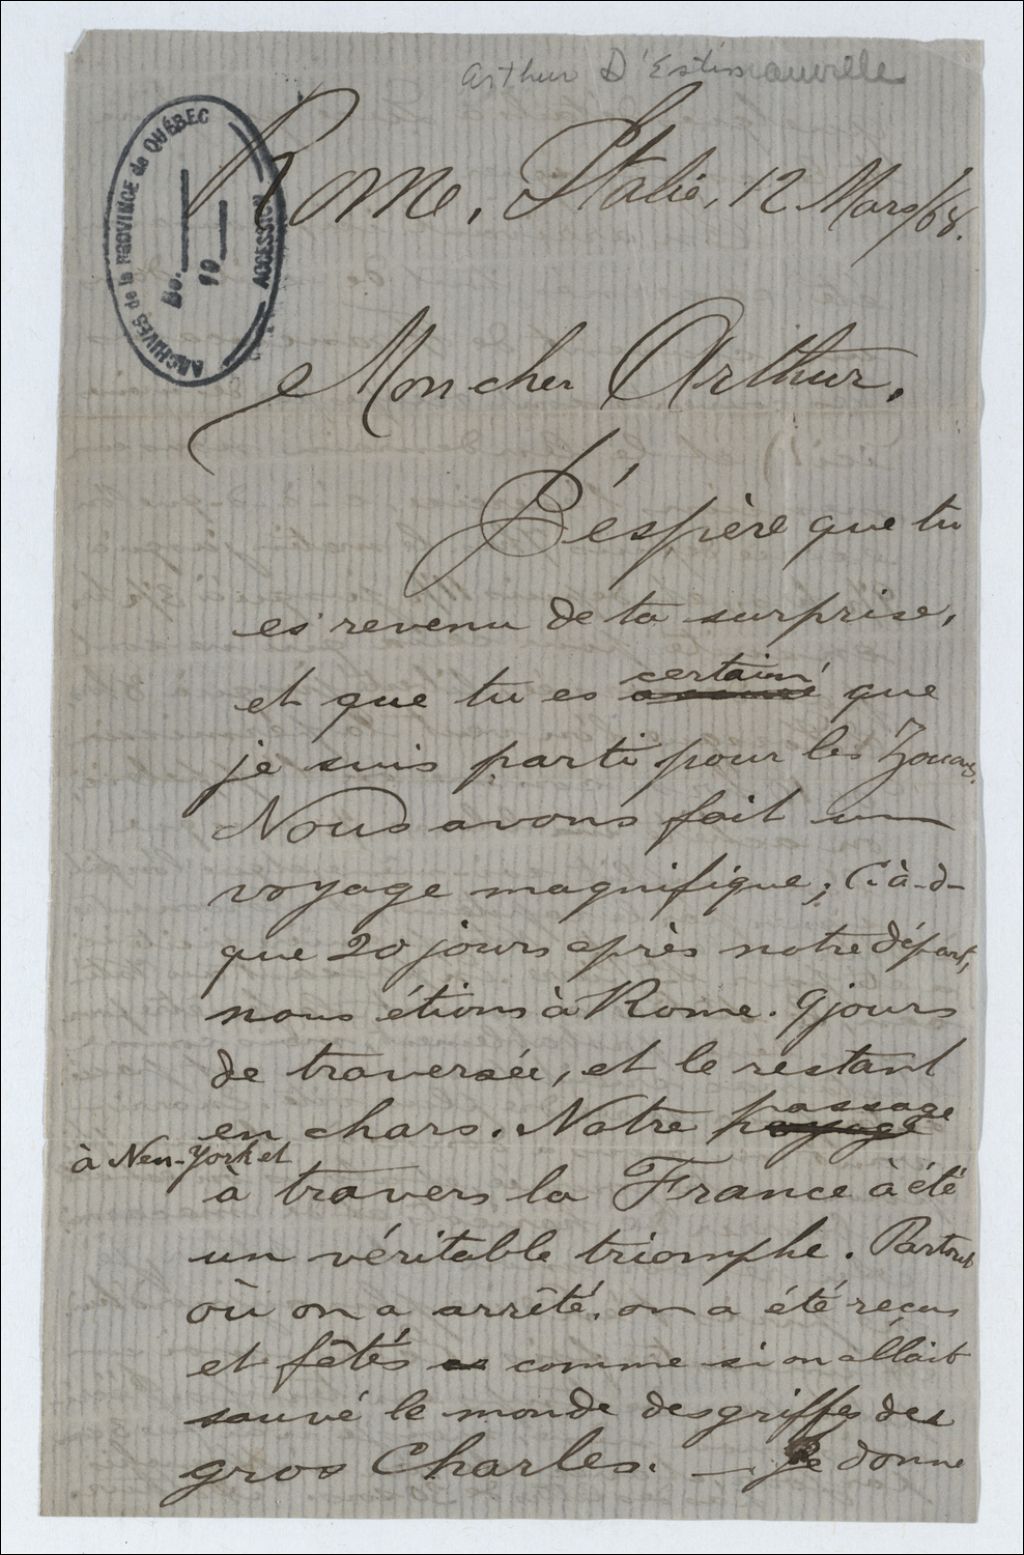 Arthur D'Estimauville
ARCHIVES de la PROVINCE de QUÉBEC
No.
19
ACCESSION
Rome, Italie, 12 Mars/68.
Mon cher Arthur,
J'éspère que tu
es revenu de ta surprise,
et que tu es certain que
je suis parti pour les Zouaves.
Nous avons fait un
voyage magnifique; C.-à-d-
que 20 jours après notre départ,
nous étions à Rome. 9 jours
de traversée, et le restant
en chars. Notre passage
à New-York et
à travers la France à été
un véritable triomphe. Partout
où on a arrêté, on a été reçus
et fêtés comme si on allait
sauvé le monde des griffes des
gros Charles. — Je donne